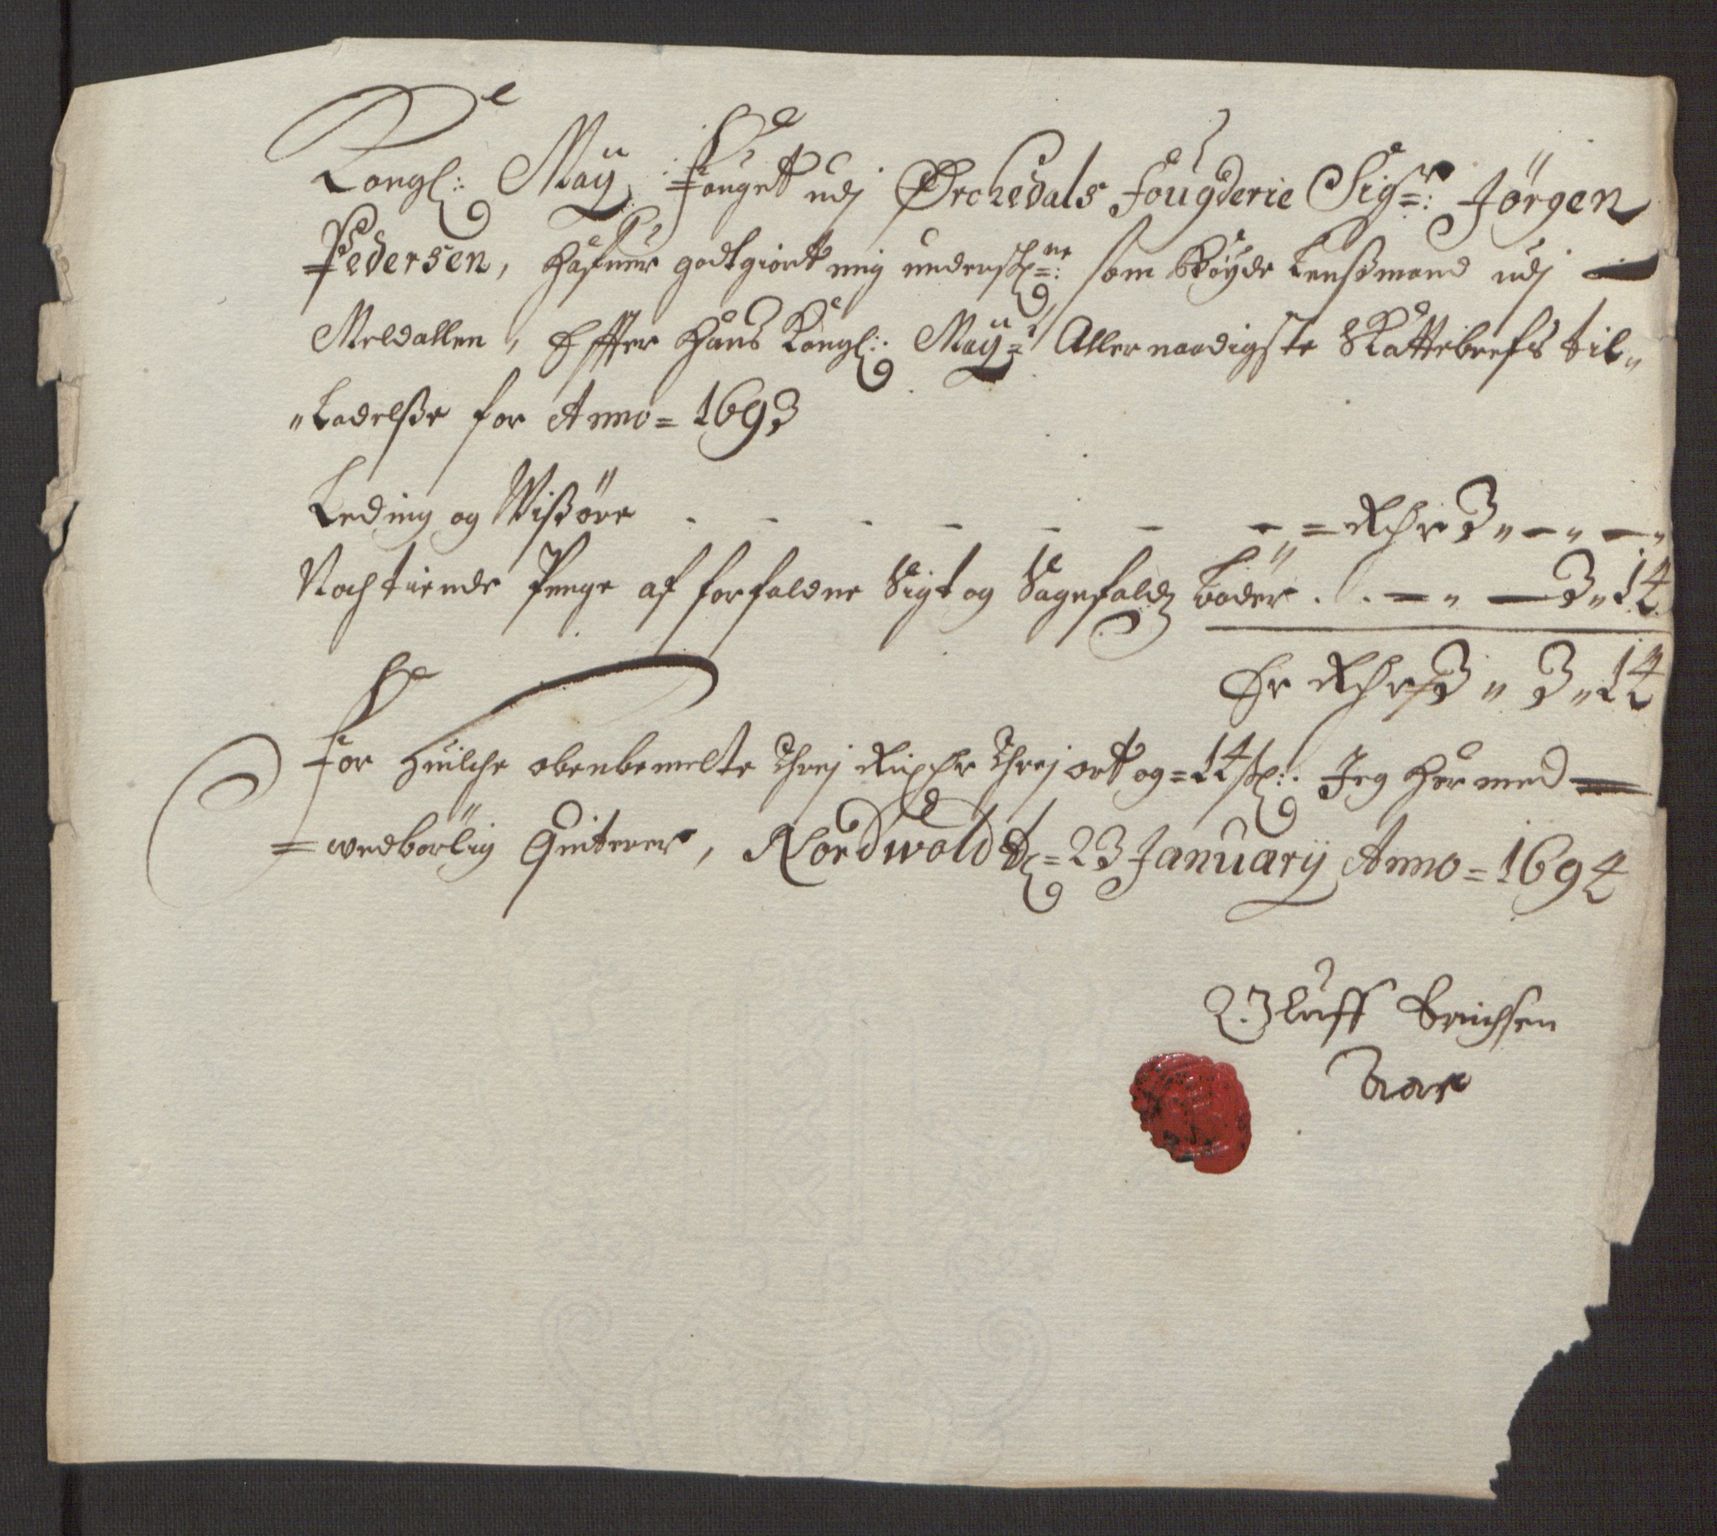 Kongl: May: Fouget udj Ørchedals Fougderie Sigr: Jörgen
Pedersen, hafuer godtgiort mig undersk=ne: som Böyde Lensmand udj
Meldallen, Effter Hans Kongl: Maytz Allernaadigste Skattebrefs til„
„Ladelsse for Anno= 1693
Leding og Wissöre - - - - - - - = Rdr 3 „ — „ — „
Noch tiende Penge af forfaldne Sigt og Sagefaldz böder . . — „ — 3 „ 14
Er Rdr 3 „ 3 „ 14
For huilche obenbemelte Threj Rixdr Threj ort og= 14 sk: Jeg her med
= wedbörlig Quiterer, Nordwold d= 23 Januarij Anno= 1694
Oluff Erichsen
Aar